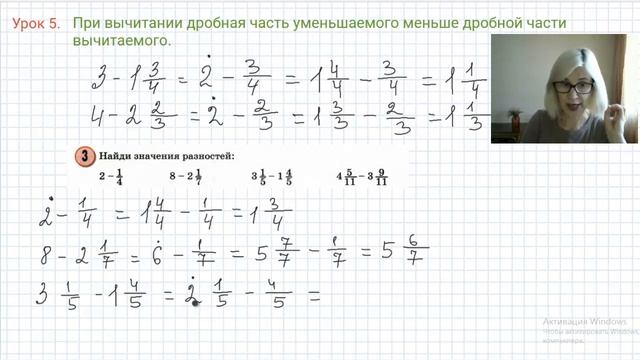 Урок 5. При вычитании дробная часть уменьшаемого меньше дробной части
вычитаемого.
3 - 1 3/4 = 2 - 3/4 = 1 4/4 - 3/4 = 1 1/4
4 - 2 2/3 = 2 - 2/3 = 1 3/3 - 2/3 = 1 1/3
3 Найди значения разностей:
2 - 1/4 8 - 2 1/7 3 1/5 - 1 4/5 4 5/11 - 3 9/11
2 - 1/4 = 1 4/4 - 1/4 = 1 3/4
8 - 2 1/7 = 6 - 1/7 = 5 7/7 - 1/7 = 5 6/7
3 1/5 - 1 4/5 = 2 1/5 - 4/5 =
Активация Windows
Чтобы активировать Windows,
компьютера.